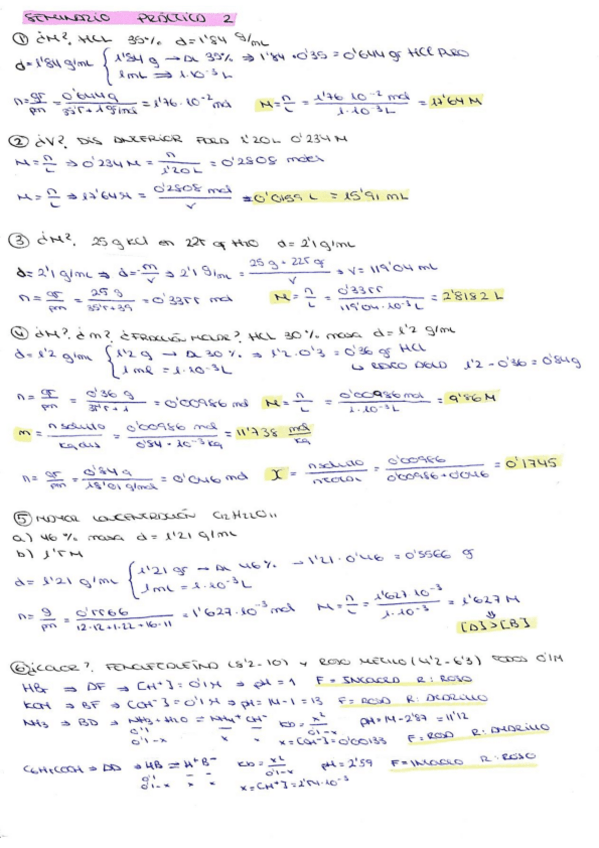 SEMINARIO PRÁCTICO 2
① ¿M?, HCL 35% d=1'84 g/mL
d=1'84 g/mL { 1'84 g → DL 35% ⇒ 1'84 · 0'35 = 0'644 gr HCl PURO
1mL ⇒ 1·10⁻³ L
n = gr/pm = 0'644g / 35'5+1 g/mol = 1'76·10⁻² mol M = n/L = 1'76·10⁻² mol / 1·10⁻³ L = 17'64 M
② ¿V?, DIS ANTERIOR PARA 1'20L 0'234M
M = n/L ⇒ 0'234M = n / 1'20L = 0'2808 moles
M = n/L ⇒ 17'64M = 0'2808 mol / V = 0'0159 L = 15'91 mL
③ ¿M?, 25 g KCl en 225 gr H2O d= 2'1 g/mL
d= 2'1 g/mL ⇒ d= m/V ⇒ 2'1 g/mL = 25 g + 225 gr / V = V = 119'04 mL
n = gr/pm = 25 g / 35'5+39 = 0'3355 mol M = n/L = 0'3355 / 119'04·10⁻³ L = 2'8182 L
④ ¿M?, ¿m?, ¿FRACCIÓN MOLAR?, HCL 30% masa d= 1'2 g/mL
d= 1'2 g/mL { 1'2 g → DL 30% ⇒ 1'2 · 0'3 = 0'36 gr HCl
1 mL = 1·10⁻³ L ↳ 1'2 - 0'36 = 0'84g
n = gr/pm = 0'36 g / 35'5+1 = 0'00986 mol M = n/L = 0'00986 mol / 1·10⁻³ L = 9'86 M
m = n soluto / kg dis = 0'00986 mol / 0'84·10⁻³ kg = 11'738 mol/kg
n = gr/pm = 0'84 g / 18'01 g/mol = 0'046 mol X = n soluto / n total = 0'00986 / 0'00986+0'046 = 0'1745
⑤ MAYOR CONCENTRACIÓN C12H22O11
a) 46% masa d= 1'21 g/mL
b) 1'5M
d= 1'21 g/mL { 1'21 gr → DL 46% → 1'21 · 0'46 = 0'5566 g
1 mL = 1·10⁻³ L
n = g/pm = 0'5566 / 12·12+1·22+16·11 = 1'627·10⁻³ mol M = n/L = 1'627·10⁻³ / 1·10⁻³ = 1'627 M
⇓
[A]>[B]
⑥ ¿COLOR?, FENOLFTALEÍNA (8'2-10) Y ROJO METILO (4'2-6'3) TODOS 0'1M
HBr ⇒ AF ⇒ [H⁺]= 0'1M ⇒ pH = 1 F = INCOLORO R: ROJO
KOH ⇒ BF ⇒ [OH⁻]= 0'1M ⇒ pH= 14-1 = 13 F= ROSA R: AMARILLO
NH3 ⇒ BD ⇒ NH3 + H2O = NH4⁺ OH⁻ Kb= x²/0'1-x pH= 14-2'87 = 11'12
0'1 - -
0'1-x x x x=[OH⁻]= 0'00133 F= ROSA R: AMARILLO
C6H5COOH ⇒ AD ⇒ HB ⇌ H⁺ B⁻ Kb= x²/0'1-x pH= 2'59 F= INCOLORO R: ROJO
0'1 - -
0'1-x x x x=[H⁺]= 2'54·10⁻³